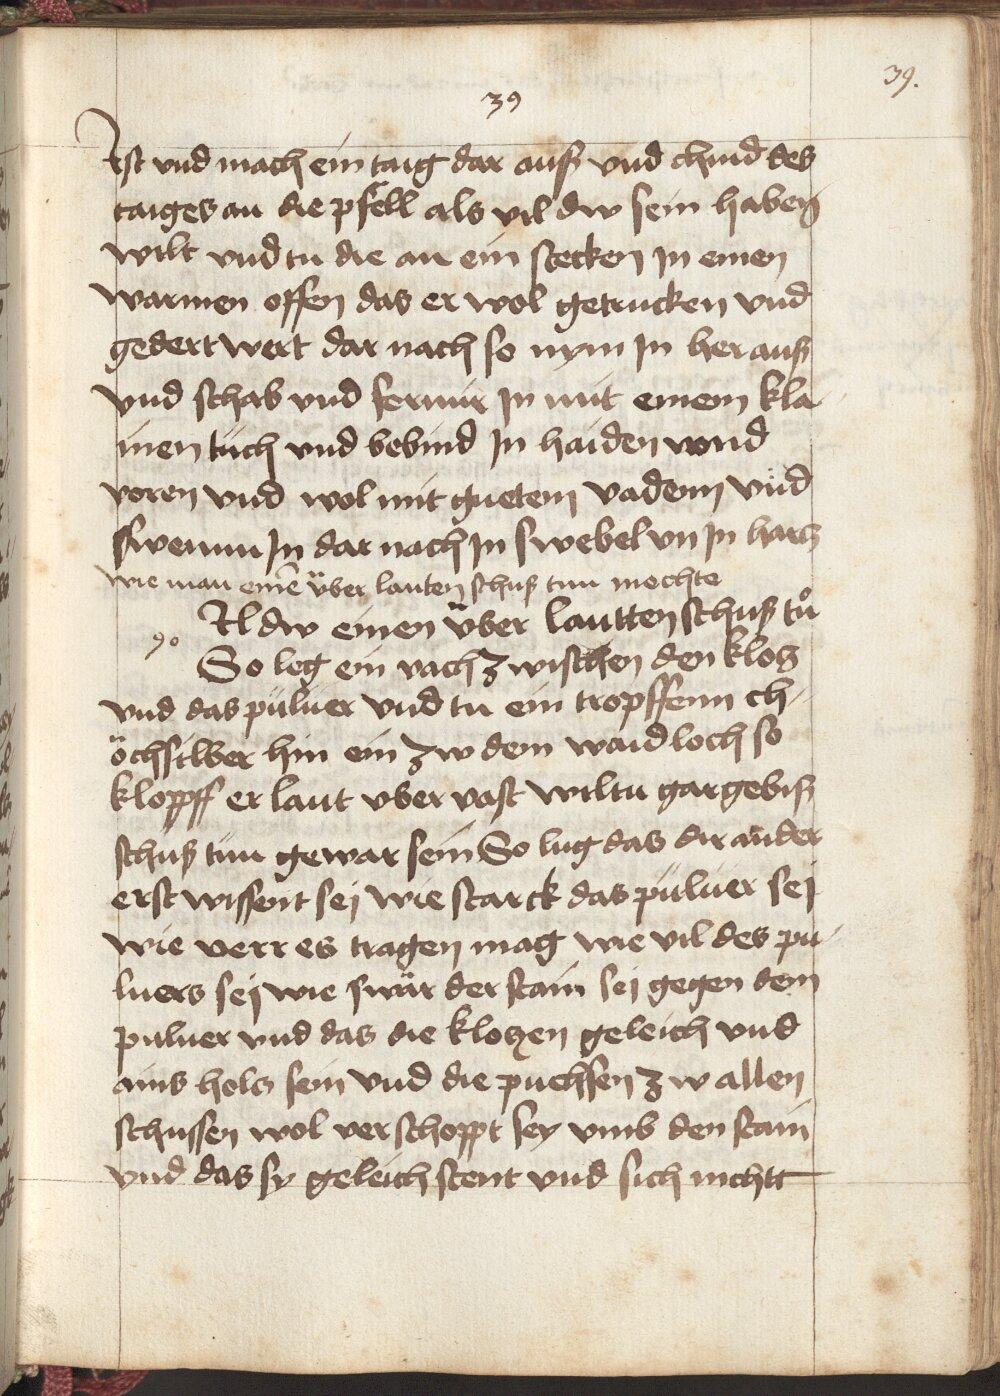 39.
39
Ist vnd mach ein taig dar auß vnd chnid des
taiges an die pfell als vil dw sein haben
wilt vnd tu die an ein stecken jn einen
warmen offen das er wol getrucken vnd
gedert wert dar nach so nym jn her auß
vnd schab vnd fernir jn mit einem kla-
inen tuch vnd bebind jn haiden vnd
voren vnd wol mit guetem vadenn vnd
swemm jn dar nach jn swebel vn jn harcz
wie man eine über lauten schuß tun mochte
Il dw einen über lautten schuß tů
90 So leg ein vach zwischen den klocz
vnd das puluer vnd tu ein tropffenn ch-
öchsilber hin ein zw dem waidloch so
klopff er laut vber vast wiltu gar gebiß
schuß tun gewar sein So lug das dir ander
erst wissent sej wie starck das puluer sej
wie verr es tragen mag wie vil des pu-
luers sej wie swär der stain sej gegen dem
puluer vnd das die kloczen geleich vnd
ains holcz sein vnd die puchsen zw allen
schussen wol verschoppt sey vmb den stain
vnd das sy geleich stent vnd sich nichtt